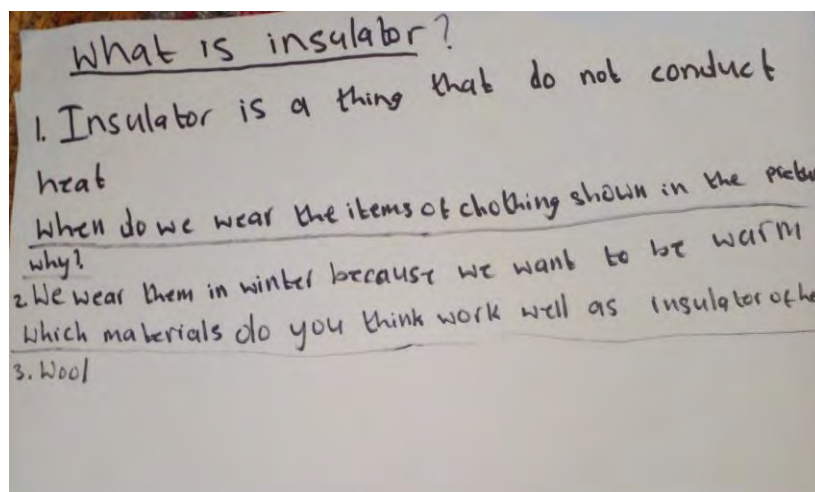 What is insulator?
1. Insulator is a thing that do not conduct
heat
When do we wear the items of chothing shown in the
why?
2. We wear them in winter because we want to be warm
Which materials do you think work well as insulator of
3. Wool